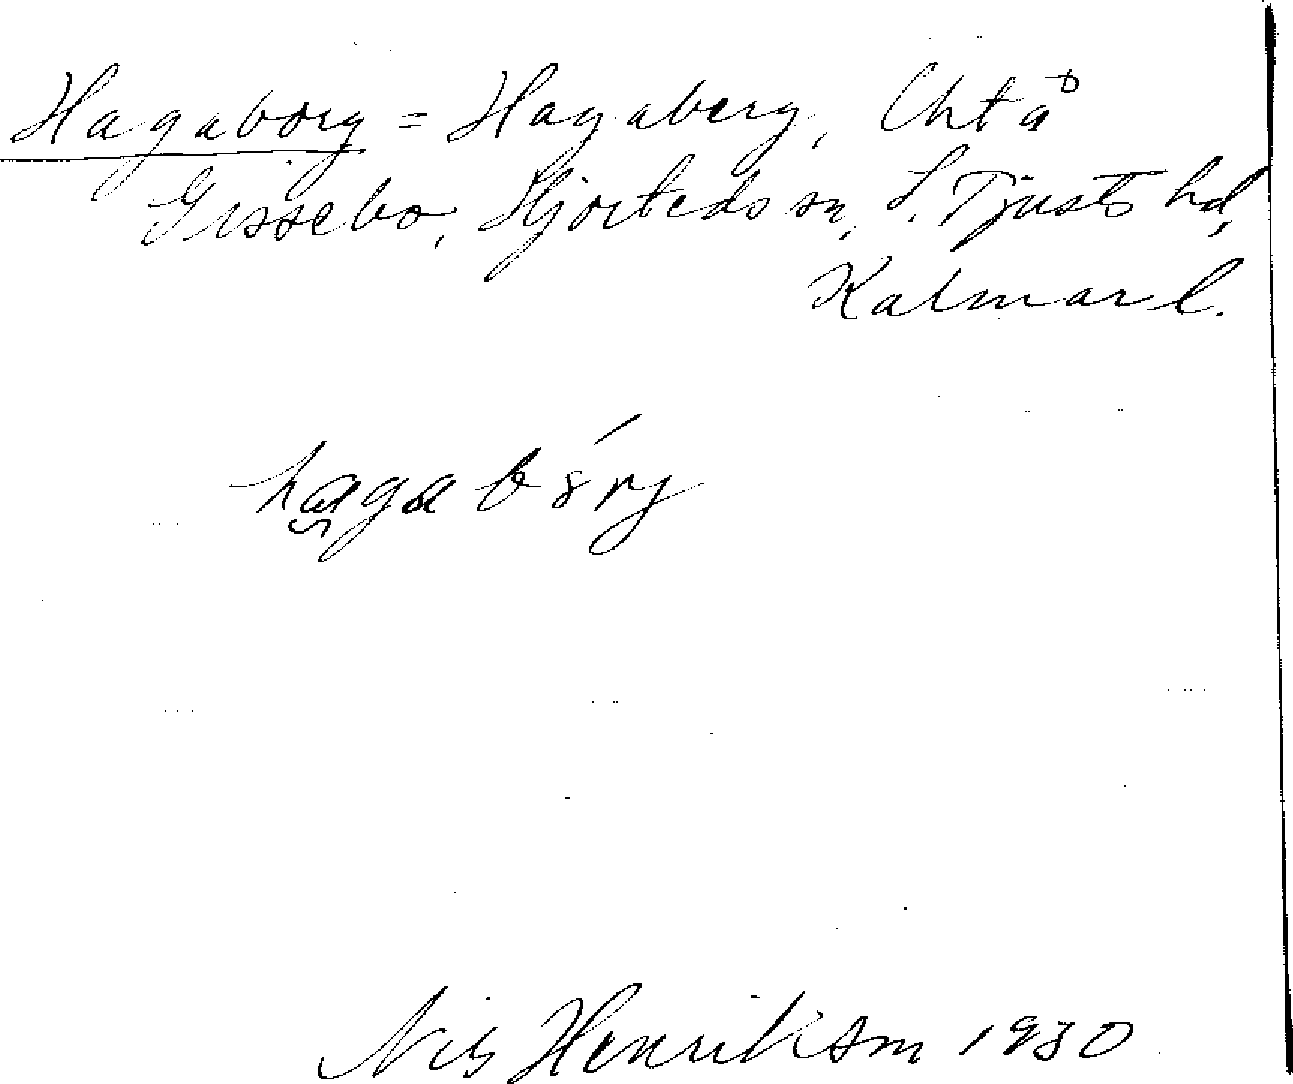 Hagaborg = Hagaberg, Lht å
Gissebo, Hjorteds sn, S. Tjusts hd,
Kalmar l.
hagabórj
Nils Henrikson 1930